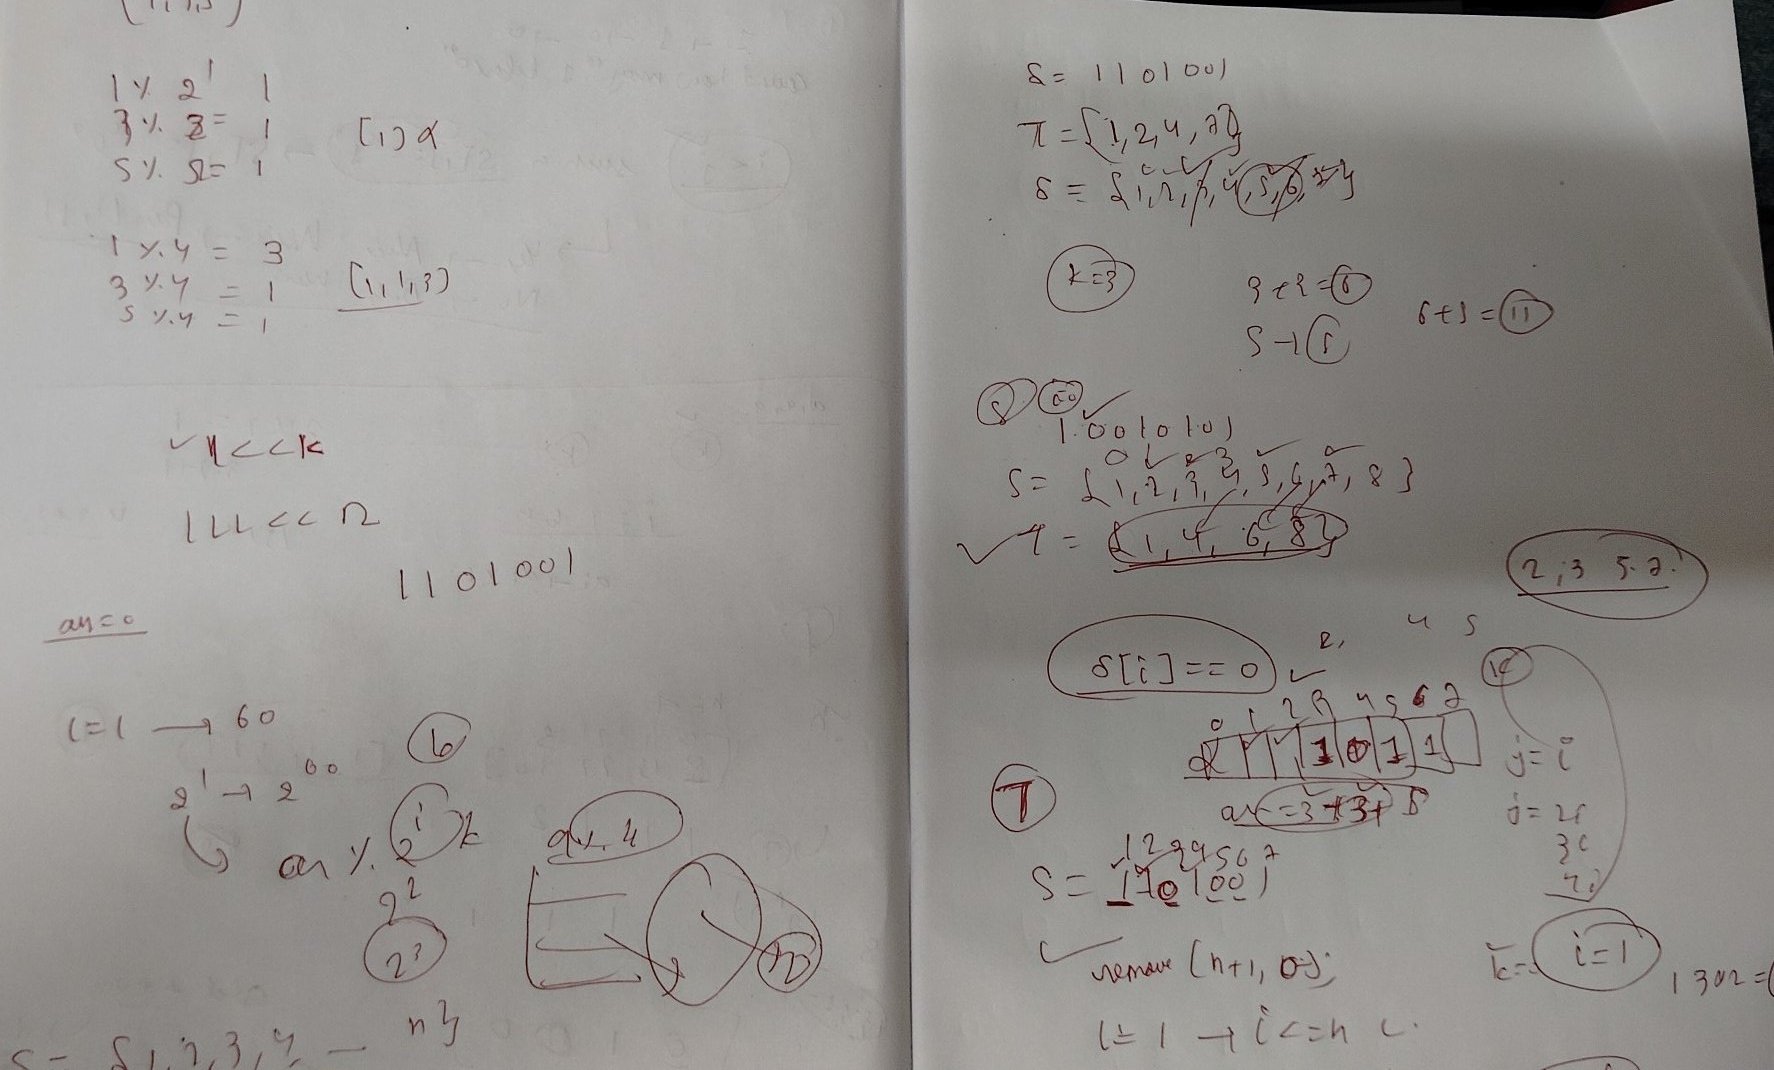 1 % 2' 1
3 % 2 = 1
5 % 2 = 1
[1]
1 % 4 = 3
3 % 4 = 1
5 % 4 = 1
[1,1,3]
n<<k
111 << n
1101001
an=0
i=1 → 60
6
2^1 → 2^60
an % 2^i k
2^2
2^3
a % 4
S = {1, 2, 3, 4 — n}
S = 1101001
T = {1,2,4,7}
S = {1,2,3,4,5,6,7}
k=3
3+3=6
5 → 5
6+5=11
10010101
0 1 2 3
S = {1,2,3,4,5,6,7,8}
T = {1,4,6,8}
2,3 5.7.
S[i]==0
2, 4 5
0 1 2 3 4 5 6 7
1 0 1 1
j=i
j=2i
3i
4i
T
an = 3+3+5
1 2 3 4 5 6 7
S = 1101001
remove (n+1, 0);
k= i=1
i=1 → i<=n
1302=